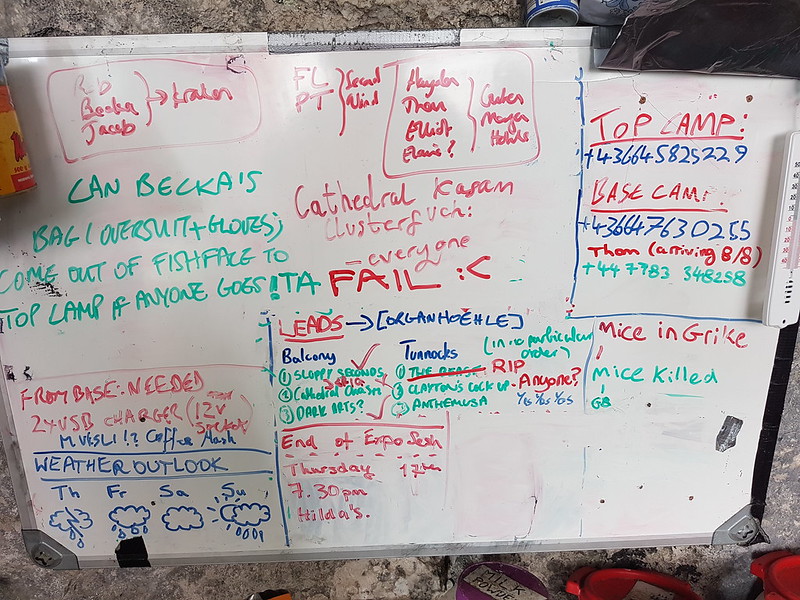 Becka
Jacob
Kraken
FL
PT
Second
Wind
Hayden
Thom
Elliott
Elaine?
TOP CAMP:
+436645825229
BASE CAMP:
+436647630255
Thom (arriving 8/8)
+44 7783 348258
CAN BECKA'S
BAG (OVERSUIT + GLOVES)
COME OUT OF FISHFACE TO
TOP CAMP IF ANYONE GOES! TA
Cathedral Chasm
Clusterfuck:
- everyone
FAIL :<
LEADS → [ORGANHOEHLE]
Balcony
① SLOPPY SECONDS
② Cathedral Chasm
③ DARK ARTS?
Tunnocks
(in no particular
order)
① THE BEAST RIP
② CLAYTON'S COCK UP - Anyone?
③ ANTHEMUSA
Yes Yes Yes
Mice in Grike
Mice Killed
GB
FROM BASE: NEEDED
2x USB CHARGER (12V
MUESLI!? Coffee Hash
WEATHER OUTLOOK
Th Fr Sa Su
End of Expo Sesh
Thursday 17th
7.30pm
Hilda's.